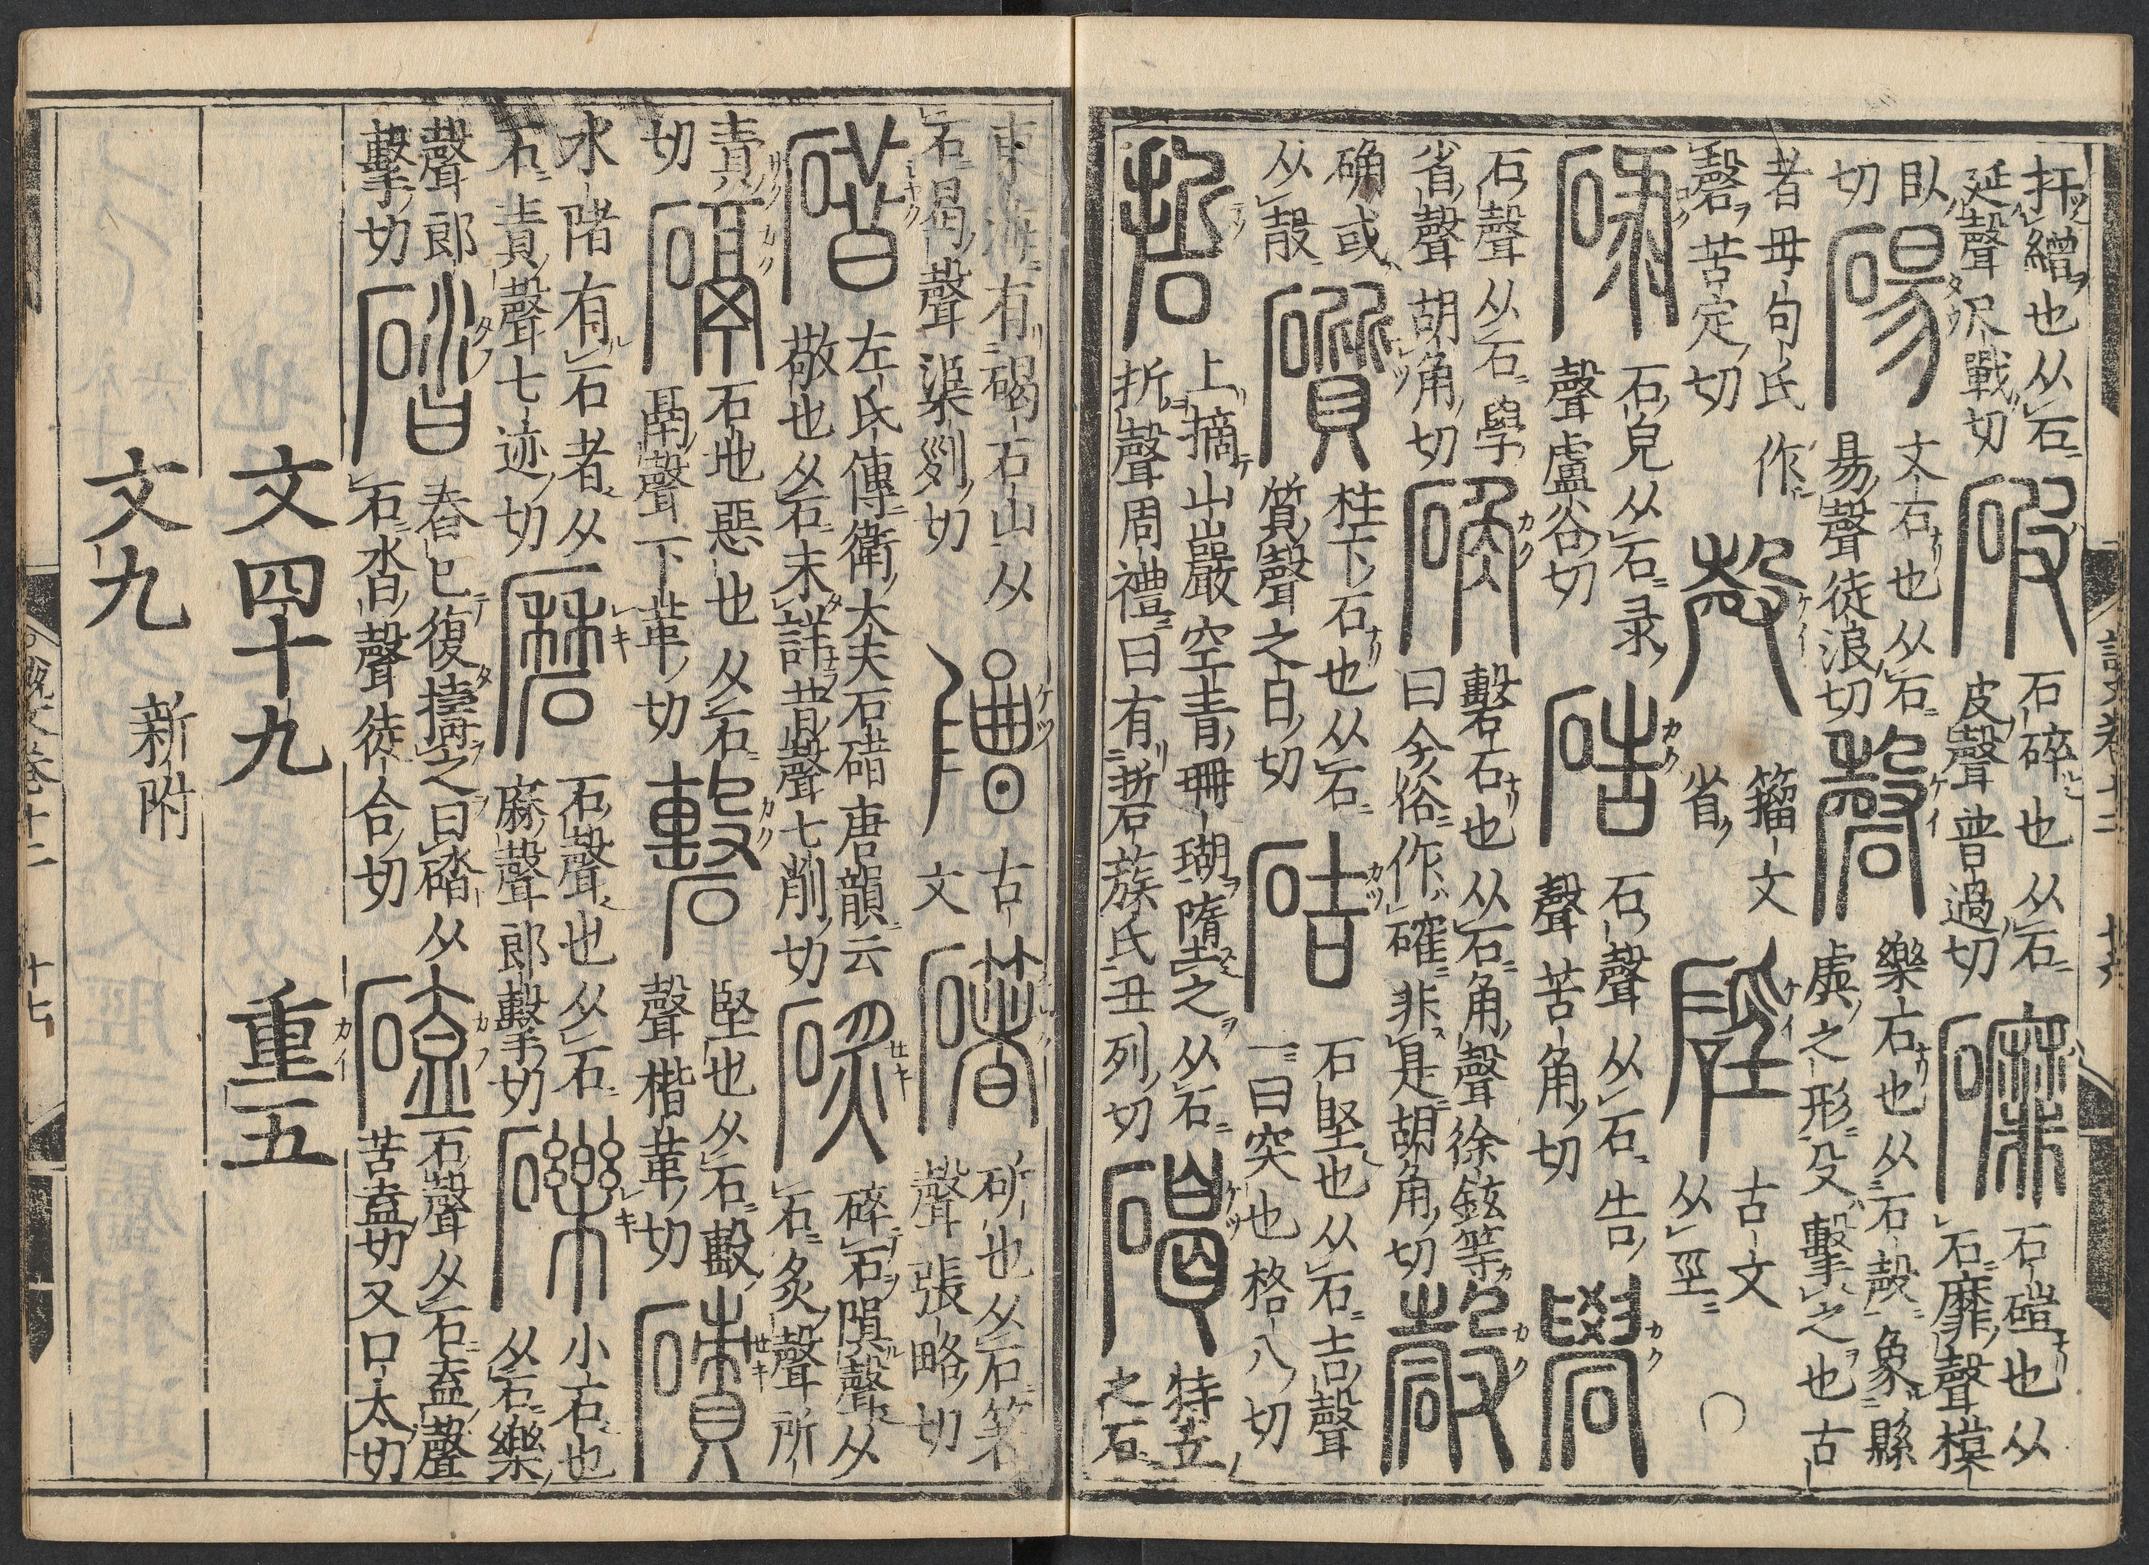 扞繒也从石
延聲尺戰切
破
石碎也从石
皮聲普過切
䃺
石磑也从
石靡聲模
臥
切
碭
文石也从石
昜聲徒浪切
磬
樂石也从石殸象縣
虡之形殳擊之也古
者毋句氏作
磬苦定切
殸
籒文
省
硜
古文
从巠
碌
石皃从石彔
聲盧谷切
硞
石聲从石告
聲苦角切
礐
石聲从石學
省聲胡角切
确
磬石也从石角聲徐鉉等
曰今俗作確非是胡角切
确或
从㱿
礩
柱下石也从石
質聲之日切
硈
石堅也从石吉聲
一曰突也格八切
硩
上摘山巖空青珊瑚墯之从石
折聲周禮曰有硩蔟氏丑列切
碣
特立
之石
說文卷十二 十六
東海有碣石山从
石曷聲渠列切
古
文
斫也从石箸
聲張略切
碏
左氏傳衛大夫石碏唐韻云
敬也从石未詳昔聲七削切
碎石隕聲从
石炙聲所
責
切
石地惡也从石
鬲聲下革切
堅也从石毄
聲楷革切
磧
水陼有石者从
石責聲七迹切
石聲也从石
麻聲郎擊切
礫
小石也
从石樂
聲郎
擊切
春已復擣之曰䃮从
石沓聲徒合切
磕
石聲从石盍聲
苦盍切又口太切
文四十九 重五
文九 新附
說文卷十二 十七